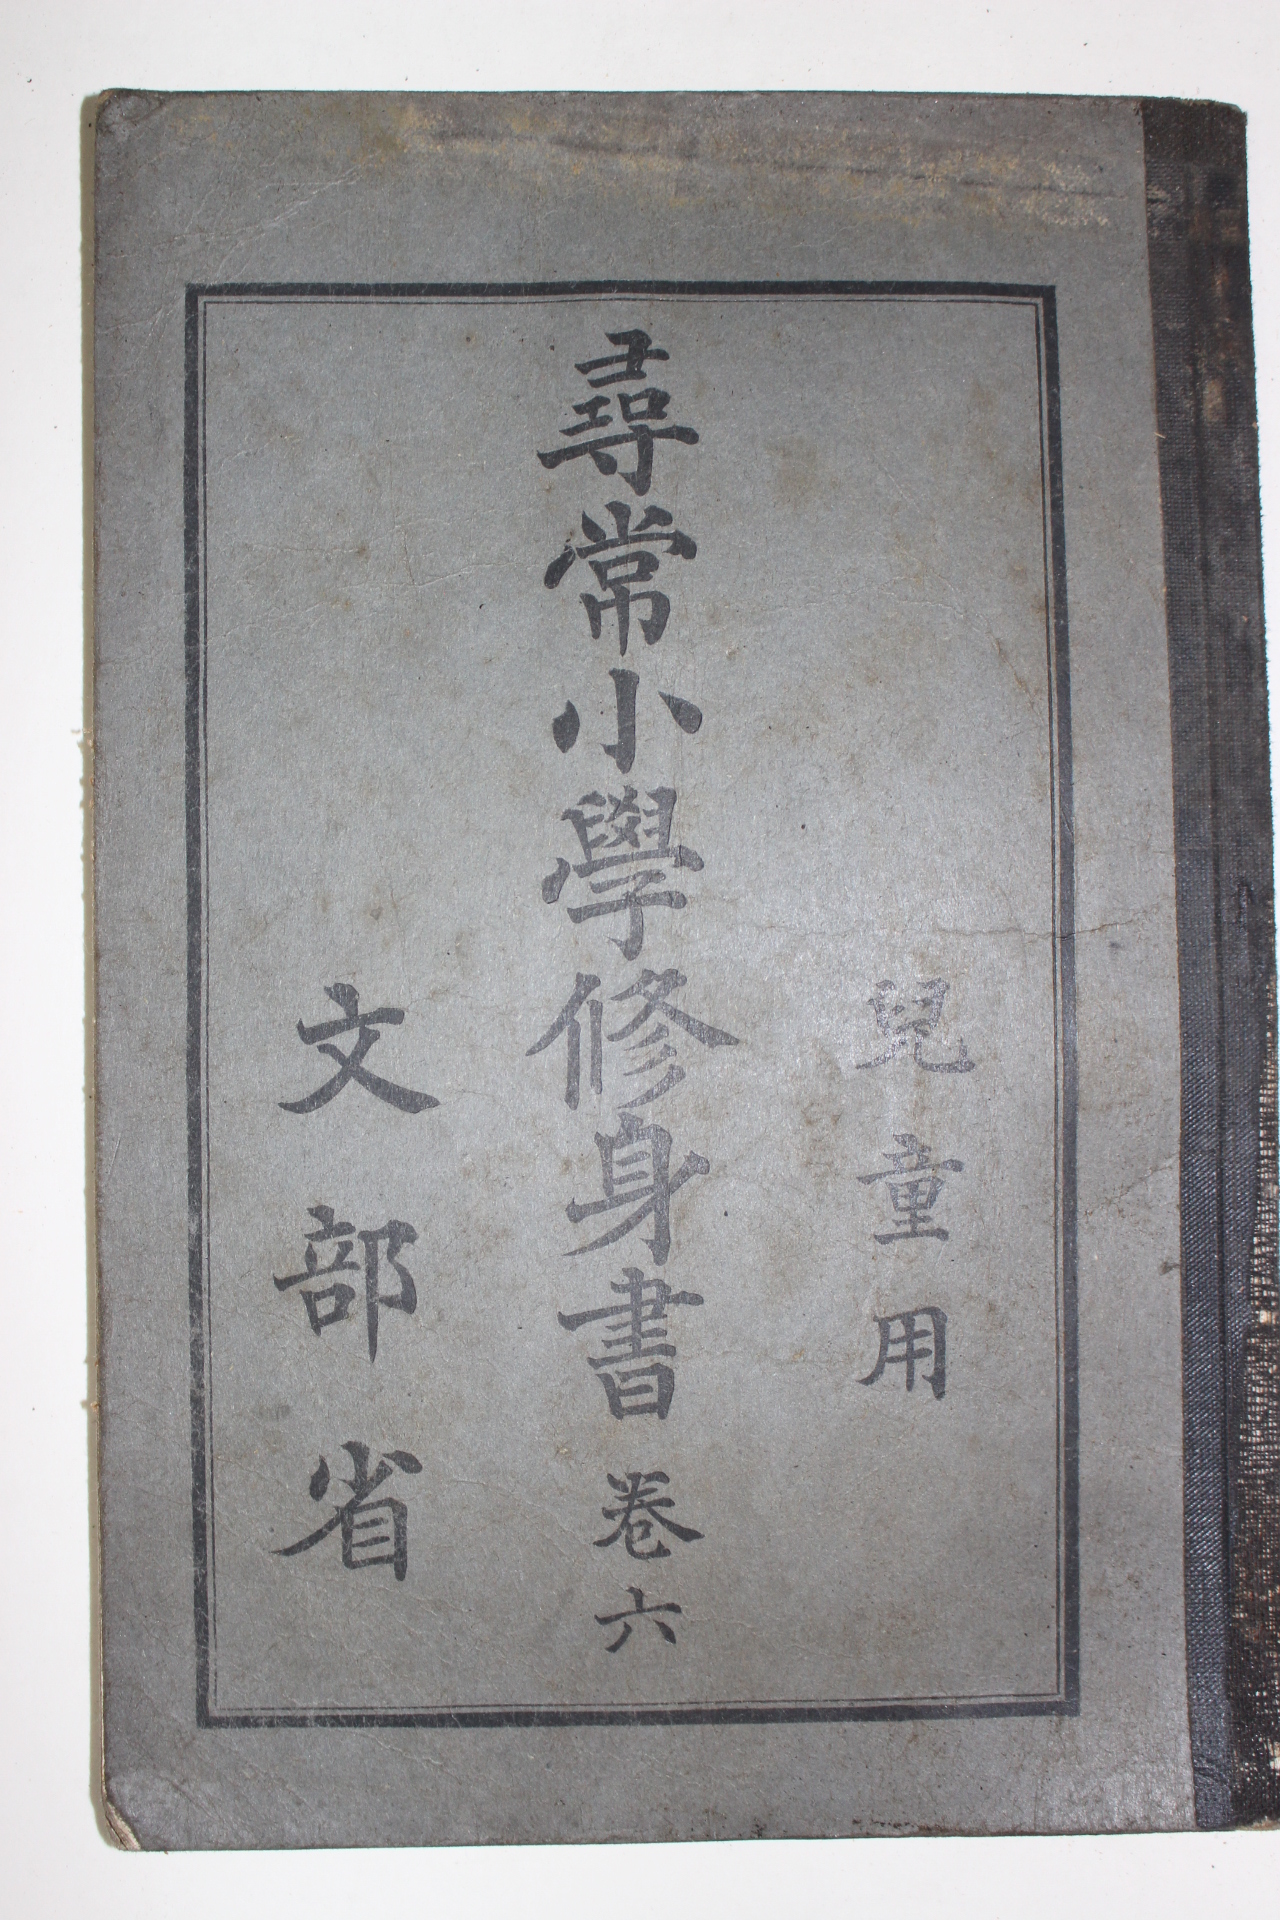 兒童用
尋常小學修身書 卷六
文部省